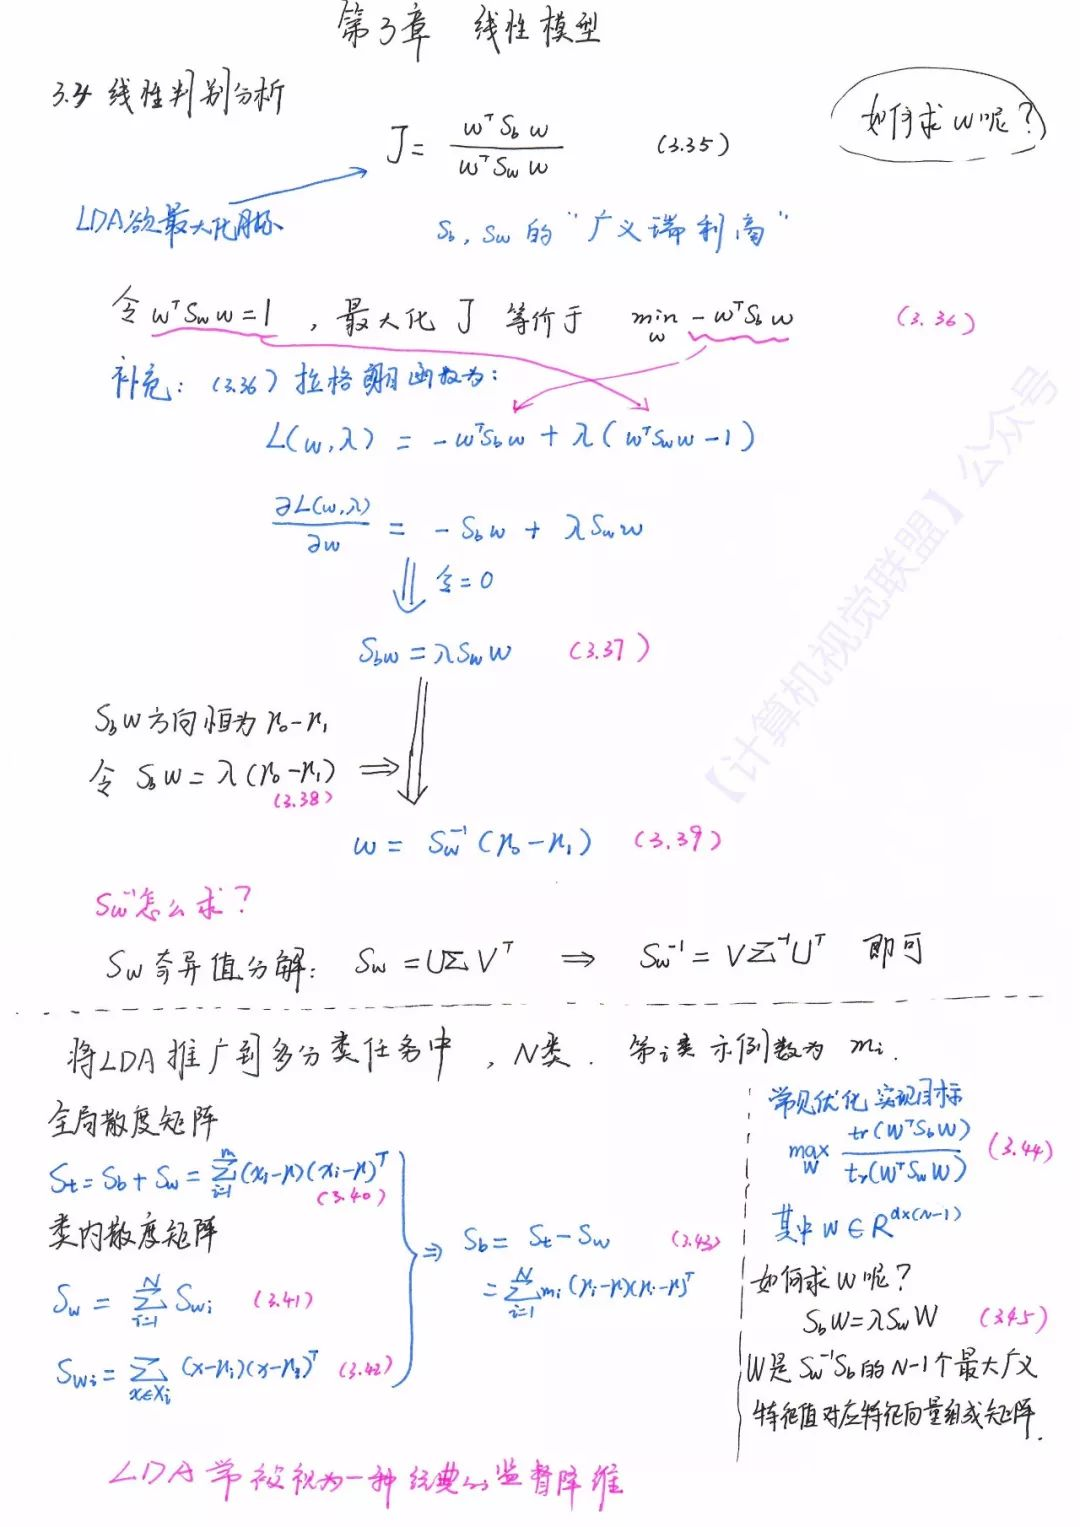 第3章 线性模型
3.4 线性判别分析
如何求w呢?
J = \frac{w^T S_b w}{w^T S_w w} (3.35)
LDA欲最大化目标
S_b, S_w 的 "广义瑞利商"
令 w^T S_w w = 1 , 最大化 J 等价于 \min_w - w^T S_b w (3.36)
补充: (3.36) 拉格朗日函数为:
L(w,λ) = - w^T S_b w + λ(w^T S_w w - 1)
\frac{∂L(w,λ)}{∂w} = - S_b w + λ S_w w
⇓ 令=0
S_b w = λ S_w w (3.37)
S_b w 方向恒为 μ_0 - μ_1
令 S_b w = λ(μ_0 - μ_1) ⇒
(3.38)
w = S_w^{-1} (μ_0 - μ_1) (3.39)
S_w^{-1} 怎么求?
S_w 奇异值分解: S_w = UΣV^T ⇒ S_w^{-1} = VΣ^{-1}U^T 即可
将LDA推广到多分类任务中 , N类. 第i类示例数为 m_i.
全局散度矩阵
S_t = S_b + S_w = \sum_{i=1}^m (x_i-μ)(x_i-μ)^T
(3.40)
类内散度矩阵
S_w = \sum_{i=1}^N S_{w_i} (3.41)
S_{w_i} = \sum_{x∈X_i} (x-μ_i)(x-μ_i)^T (3.42)
⇒ S_b = S_t - S_w (3.43)
= \sum_{i=1}^N m_i (μ_i-μ)(μ_i-μ)^T
常见优化实现目标
\max_W \frac{tr(W^T S_b W)}{tr(W^T S_w W)} (3.44)
其中 W ∈ R^{d×(N-1)}
如何求W呢?
S_b W = λ S_w W (3.45)
W是 S_w^{-1} S_b 的 N-1个最大广义
特征值对应特征向量组成矩阵.
LDA常被视为一种经典的监督降维
【计算机视觉联盟】公众号